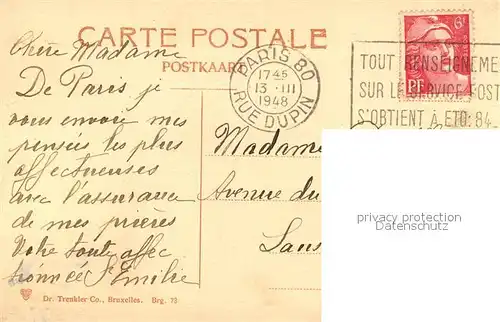 CARTE POSTALE
POSTKAART
Chère Madame
De Paris je
vous envoie mes
pensées les plus
affectueuses
avec l'assurance
de mes prières
Votre toute affec
tionnée Sr Emilie
PARIS 80
17 45
13 - III
1948
RUE DUPIN
6F
RF
TOUT RENSEIGNEME
SUR LE SERVICE POST
S'OBTIENT À ETO: 84-
Madame
Avenue du
Laus
privacy protection
Datenschutz
Dr. Trenkler Co., Bruxelles. Brg. 73